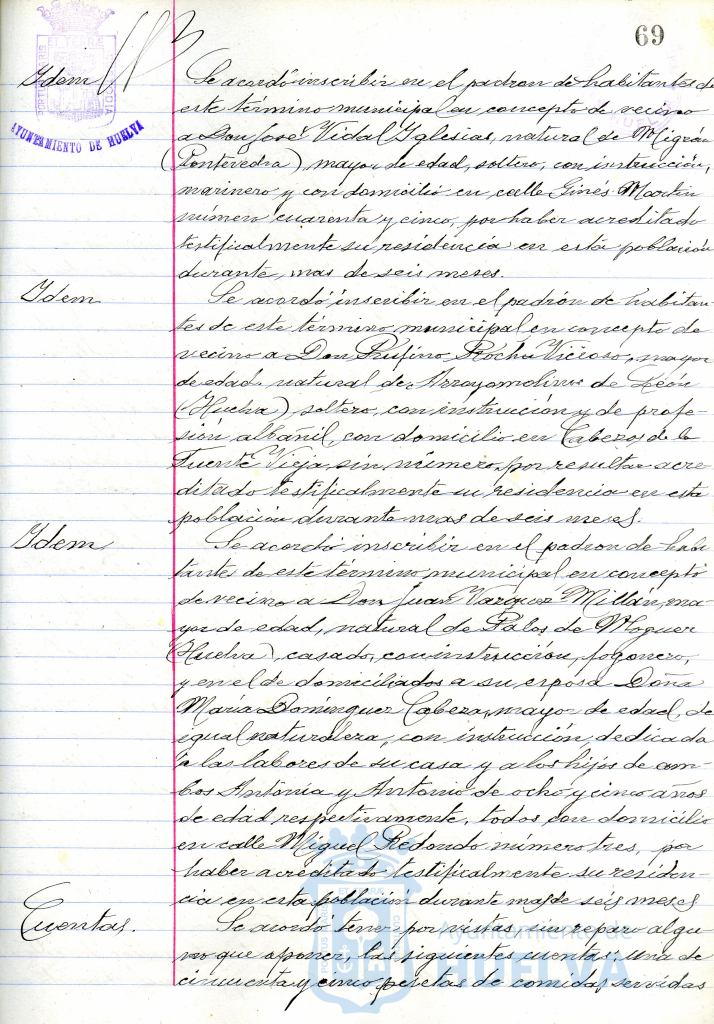 69
AYUNTAMIENTO DE HUELVA
Idem
Se acordó inscribir en el padron de habitantes de
este término municipal en concepto de vecino
a Don José Vidal Iglesias, natural de
(Pontevedra), mayor de edad, soltero, con instrucción,
marinero y con domicilio en calle Ginés Martín
número cuarenta y cinco, por haber acreditado
testificalmente su residencia en esta población
durante, mas de seis meses.
Idem
Se acordó inscribir en el padrón de habitan-
tes de este término municipal, en concepto de
vecino a Don Rufino Rocha Vicioso, mayor
de edad, natural de Arroyomolinos de León
(Huelva), soltero, con instrucción y de profe-
sión albañil, con domicilio en Cabezo de la
Fuente Vieja, sin número, por resultar acre-
ditado testificalmente su residencia en esta
población durante mas de seis meses.
Idem
Se acordó inscribir en el padron de habi-
tantes de este término municipal en concepto
de vecino a Don Juan Vazquez Millán, ma-
yor de edad, natural de Palos de Moguer
(Huelva), casado, con instrucción, fogonero,
y en el de domiciliados a su esposa Doña
María Domínguez Cabeza, mayor de edad, de
igual naturaleza, con instrucción, dedicada
a las labores de su casa y a los hijos de am-
bos Antonia y Antonio de ocho y cinco años
de edad respectivamente, todos con domicilio
en calle Miguel Redondo número tres, por
haber acreditado testificalmente su residen-
cia en esta población durante mas de seis meses
Cuentas.
Se acordó tener por vistas, sin reparo algu-
no que oponer, las siguientes cuentas: una de
cincuenta y cinco pesetas de comidas servidas
Ayuntamiento de
HUELVA